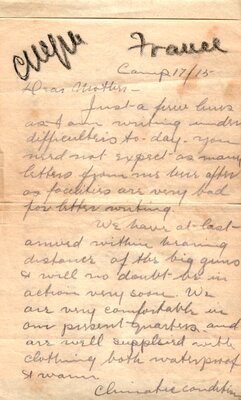 France
Camp 17/15
Dear Mother -
Just a few lines
as I am writing under
difficulties to-day - you
need not expect as many
letters from me here after
as facilities are very bad
for letter writing.
We have at-last-
arrived within hearing
distance of the big guns
& will no doubt be in
action very soon. We
are very comfortable in
our present quarters and
are well supplied with
clothing both waterproof
& warm.
Climatic condition